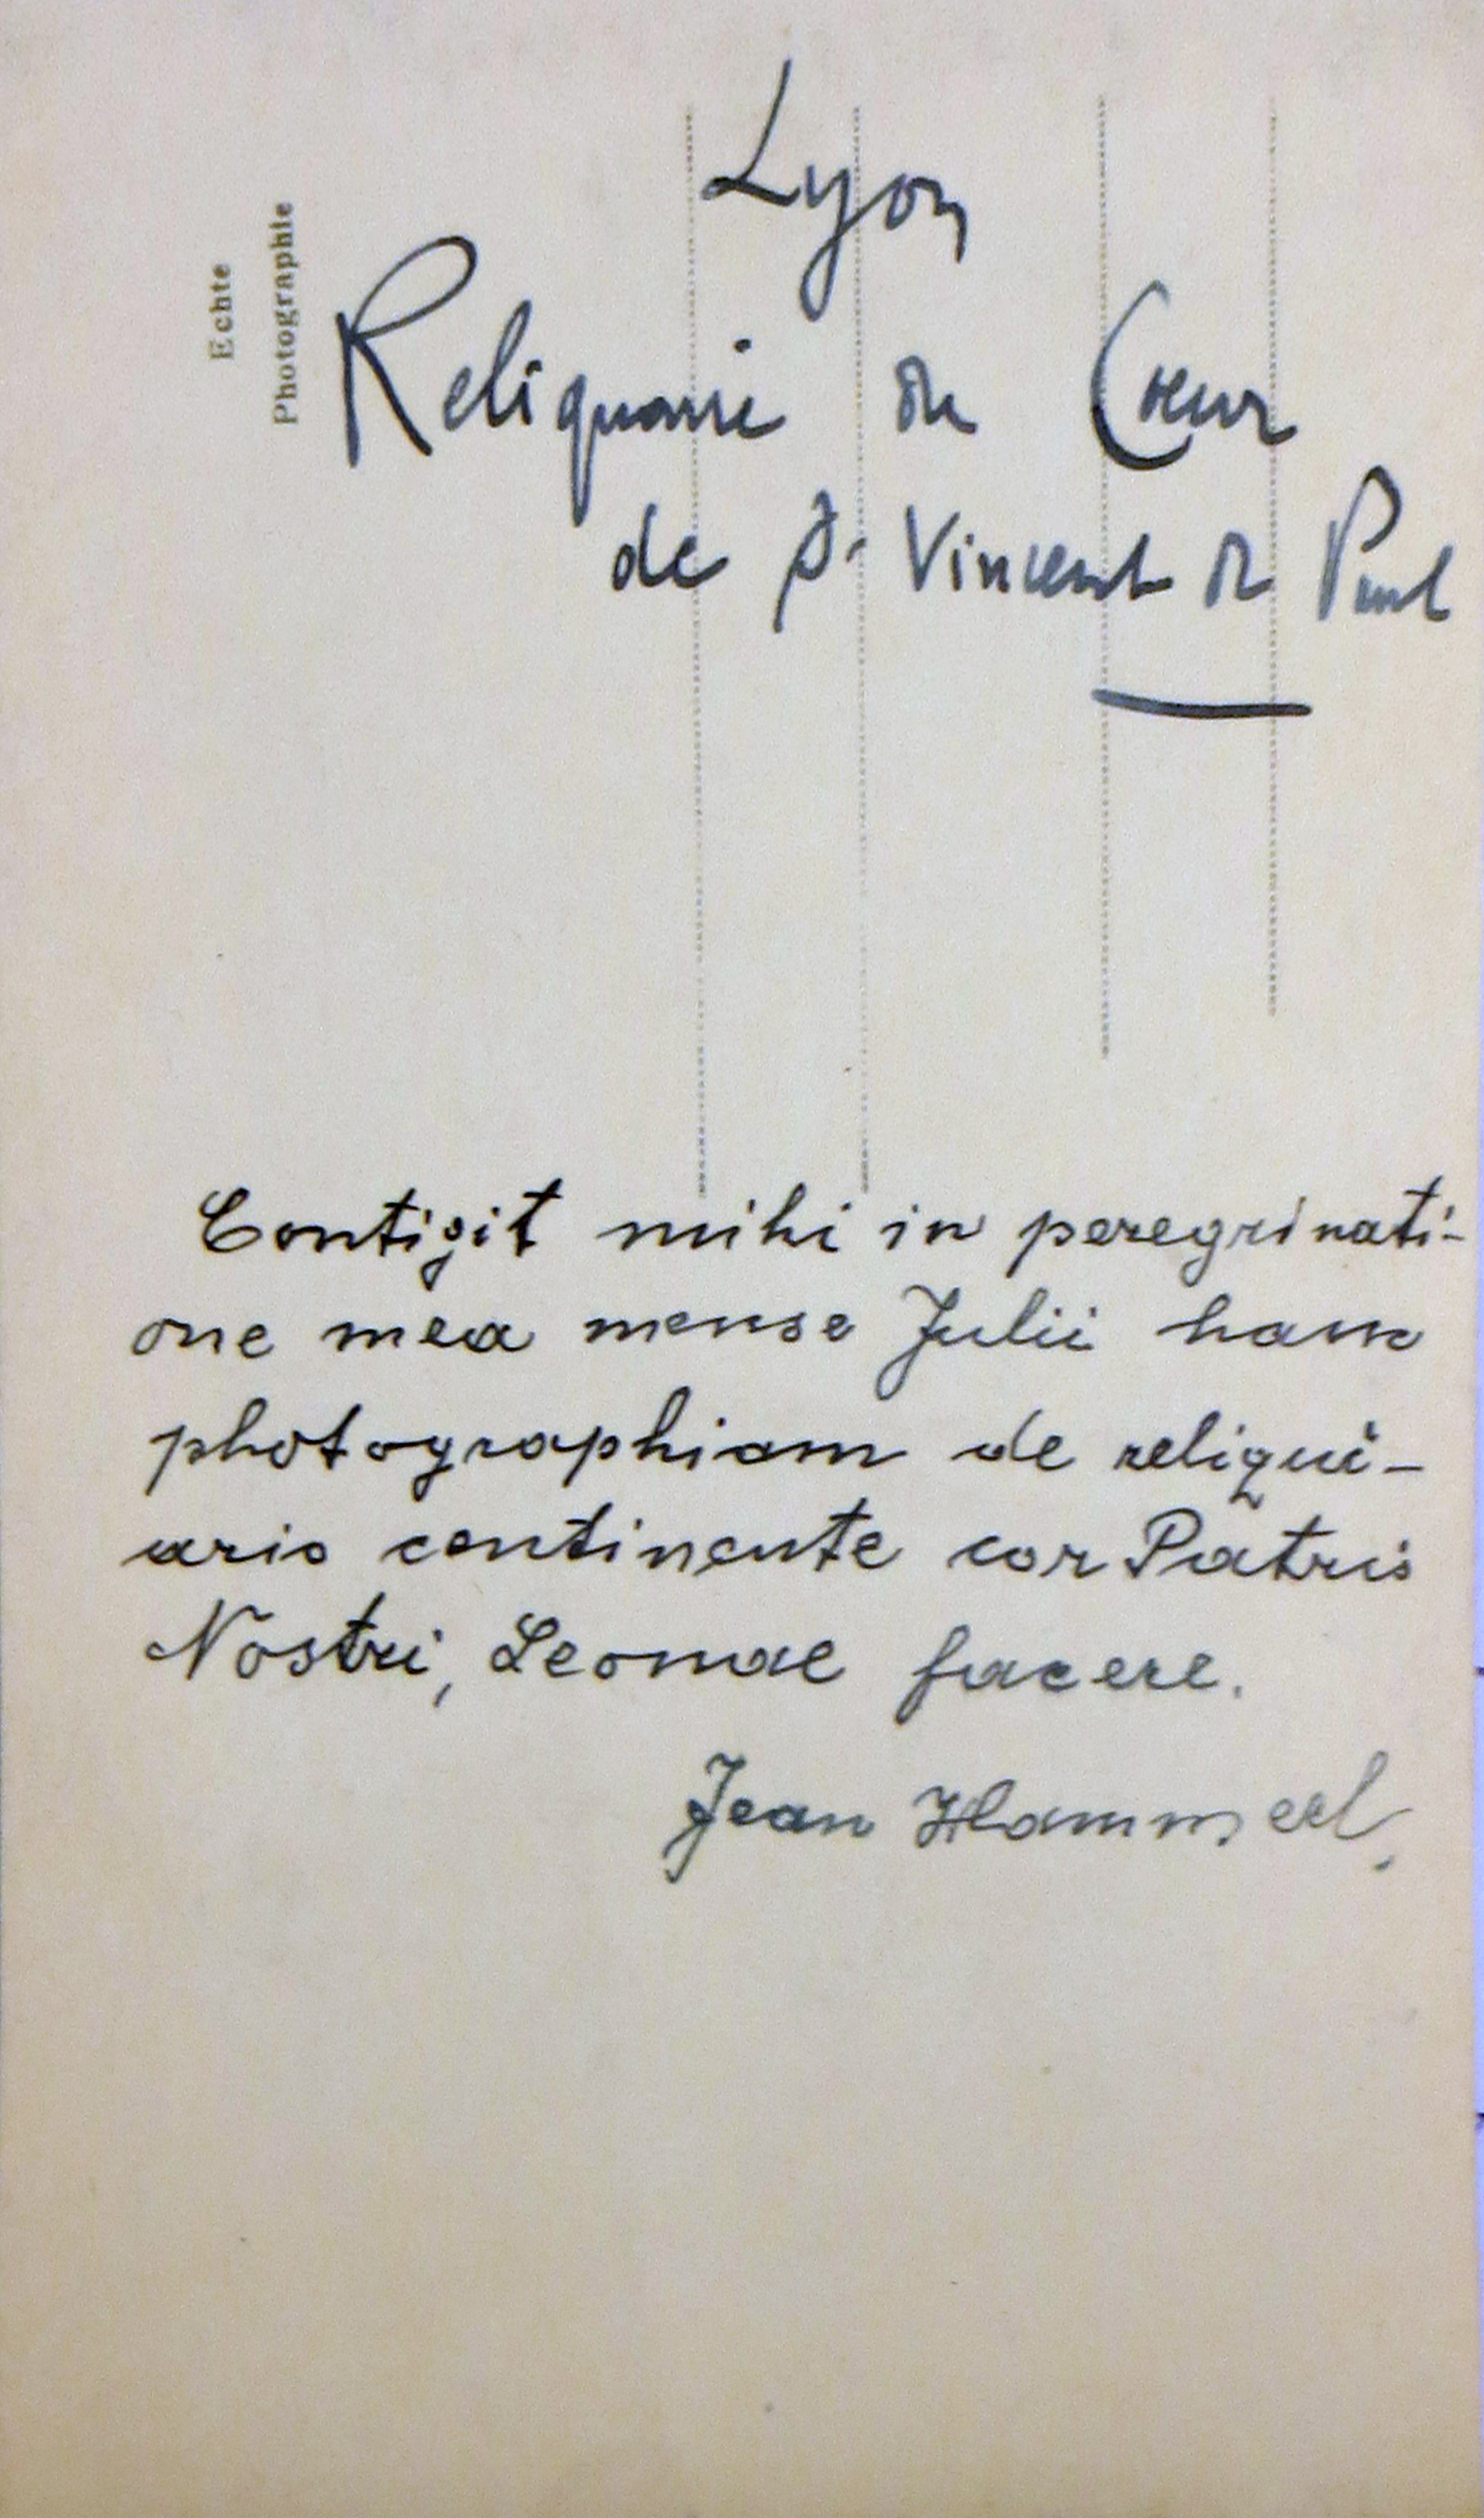 Echte
Photographie
Lyon
Reliquaire du Cœur
de St Vincent de Paul
Contigit mihi in peregrinati-
one mea mense Julii hanc
photographiam de reliqui-
ario continente cor Patris
Nostri, Leonae facere.
Jean